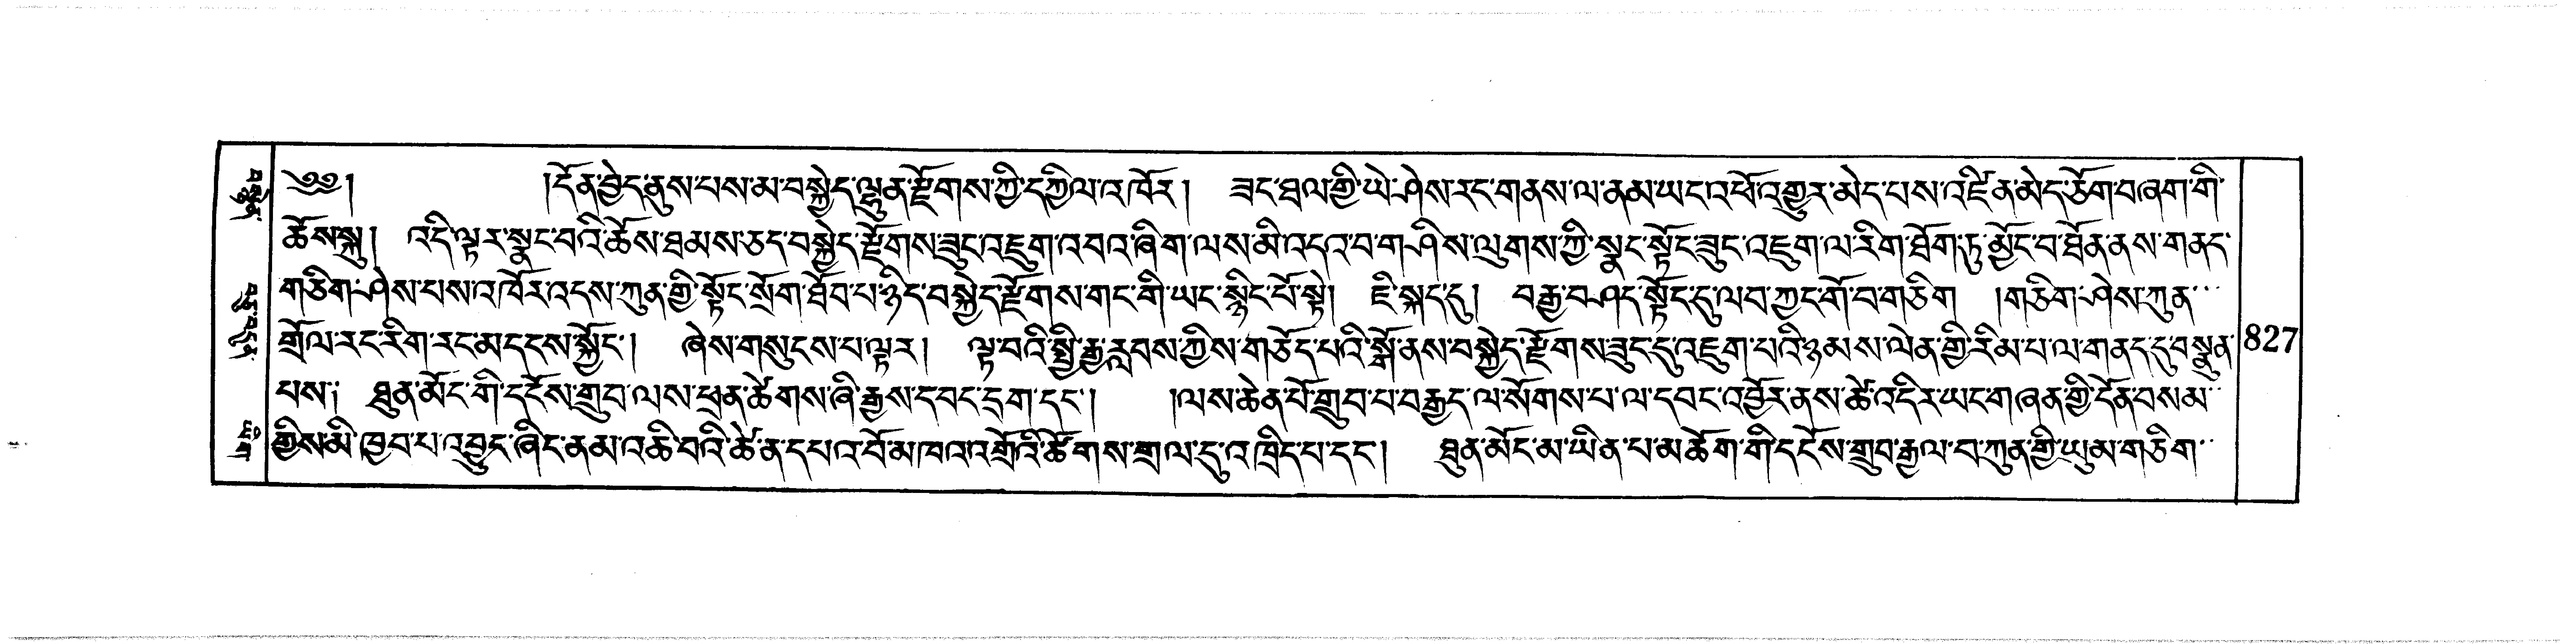 ༄༅། །དོན་བྱེད་ནུས་པས་མ་བསྐྱེད་ལྷུན་རྫོགས་ཀྱི་དཀྱིལ་འཁོར། ཟང་ཐལ་གྱི་ཡེ་ཤེས་རང་གནས་ལ་ནམ་ཡང་འཕོ་འགྱུར་མེད་པས་འཛིན་མེད་ཅོག་བཞག་གི་
ཆོས་སྐུ། འདི་ལྟར་སྣང་བའི་ཆོས་ཐམས་ཅད་བསྐྱེད་རྫོགས་ཟུང་འཇུག་འབའ་ཞིག་ལས་མི་འདའ་བ་གཤིས་ལུགས་ཀྱི་སྣང་སྟོང་ཟུང་འཇུག་ལ་རིག་ཐོག་ཏུ་མྱོང་བ་ཐོན་ནས་གནད་
གཅིག་ཤེས་པས་འཁོར་འདས་ཀུན་གྱི་སྟོང་སྲོག་ཐོབ་པ་ཉིད་བསྐྱེད་རྫོགས་གང་གི་ཡང་སྙིང་པོ་སྟེ། ཇི་སྐད་དུ། བརྒྱ་བཤད་སྟོང་དུ་ལབ་ཀྱང་གོ་བ་གཅིག །གཅིག་ཤེས་ཀུན་
གྲོལ་རང་རིག་རང་མདངས་སྐྱོང་། ཞེས་གསུངས་པ་ལྟར། ལྟ་བའི་སྤྱི་རྒྱ་རླབས་ཀྱིས་གཅོད་པའི་སྒོ་ནས་བསྐྱེད་རྫོགས་ཟུང་དུ་འཇུག་པའི་ཉམས་ལེན་གྱི་རིམ་པ་ལ་གནད་དུ་བསྣུན་
པས། ཐུན་མོང་གི་དངོས་གྲུབ་ལས་ཕྲན་ཚེགས་ཞི་རྒྱས་དབང་དྲག་དང་། །ལས་ཆེན་པོ་གྲུབ་པ་བརྒྱད་ལ་སོགས་པ་ལ་དབང་འབྱོར་ནས་ཚེ་འདིར་ཡང་གཞན་གྱི་དོན་བསམ་
གྱིས་མི་ཁྱབ་པ་འབྱུང་ཞིང་ནམ་འཆི་བའི་ཚེ་ན་དཔའ་བོ་མཁའ་འགྲོའི་ཚོགས་གྲལ་དུ་འཁྲིད་པ་དང་། ཐུན་མོང་མ་ཡིན་པ་མཆོག་གི་དངོས་གྲུབ་རྒྱལ་བ་ཀུན་གྱི་ཡུམ་གཅིག་
827